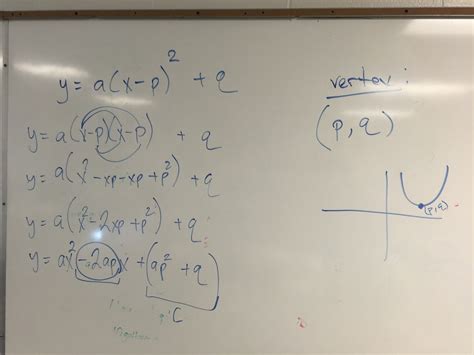 y = a(x-p)² + q
y = a(x-p)(x-p) + q
y = a(x²-xp-xp+p²) + q
y = a(x²-2xp+p²) + q
y = ax²-2apx + (ap²+q)
C
vertex:
(p,q)
(p,q)